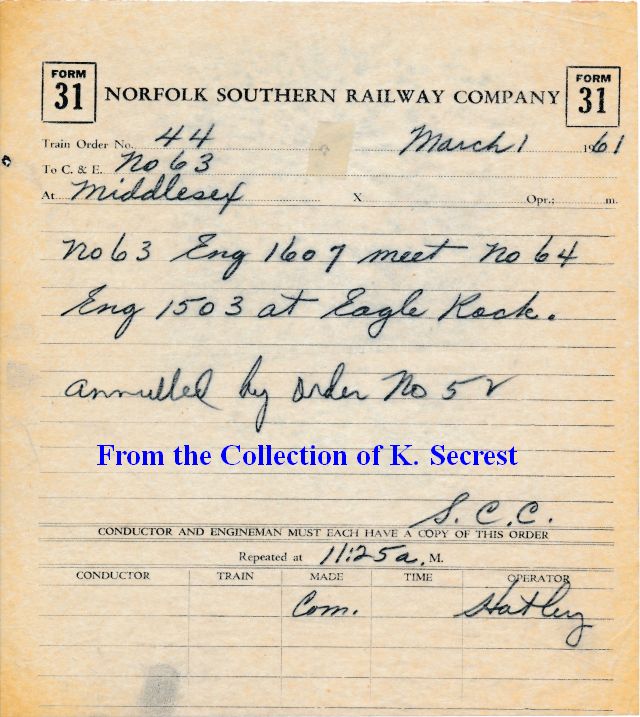 FORM 31 NORFOLK SOUTHERN RAILWAY COMPANY FORM 31
Train Order No. 44 March 1 1961
To C. & E. No 63
At Middlesex X Opr.; m.
No 63 Eng 1607 meet No 64
Eng 1503 at Eagle Rock.
annulled by order No 52
From the Collection of K. Secrest
S. C. C.
CONDUCTOR AND ENGINEMAN MUST EACH HAVE A COPY OF THIS ORDER
Repeated at 11:25 a. M.
CONDUCTOR TRAIN MADE TIME OPERATOR
Com. Hatley